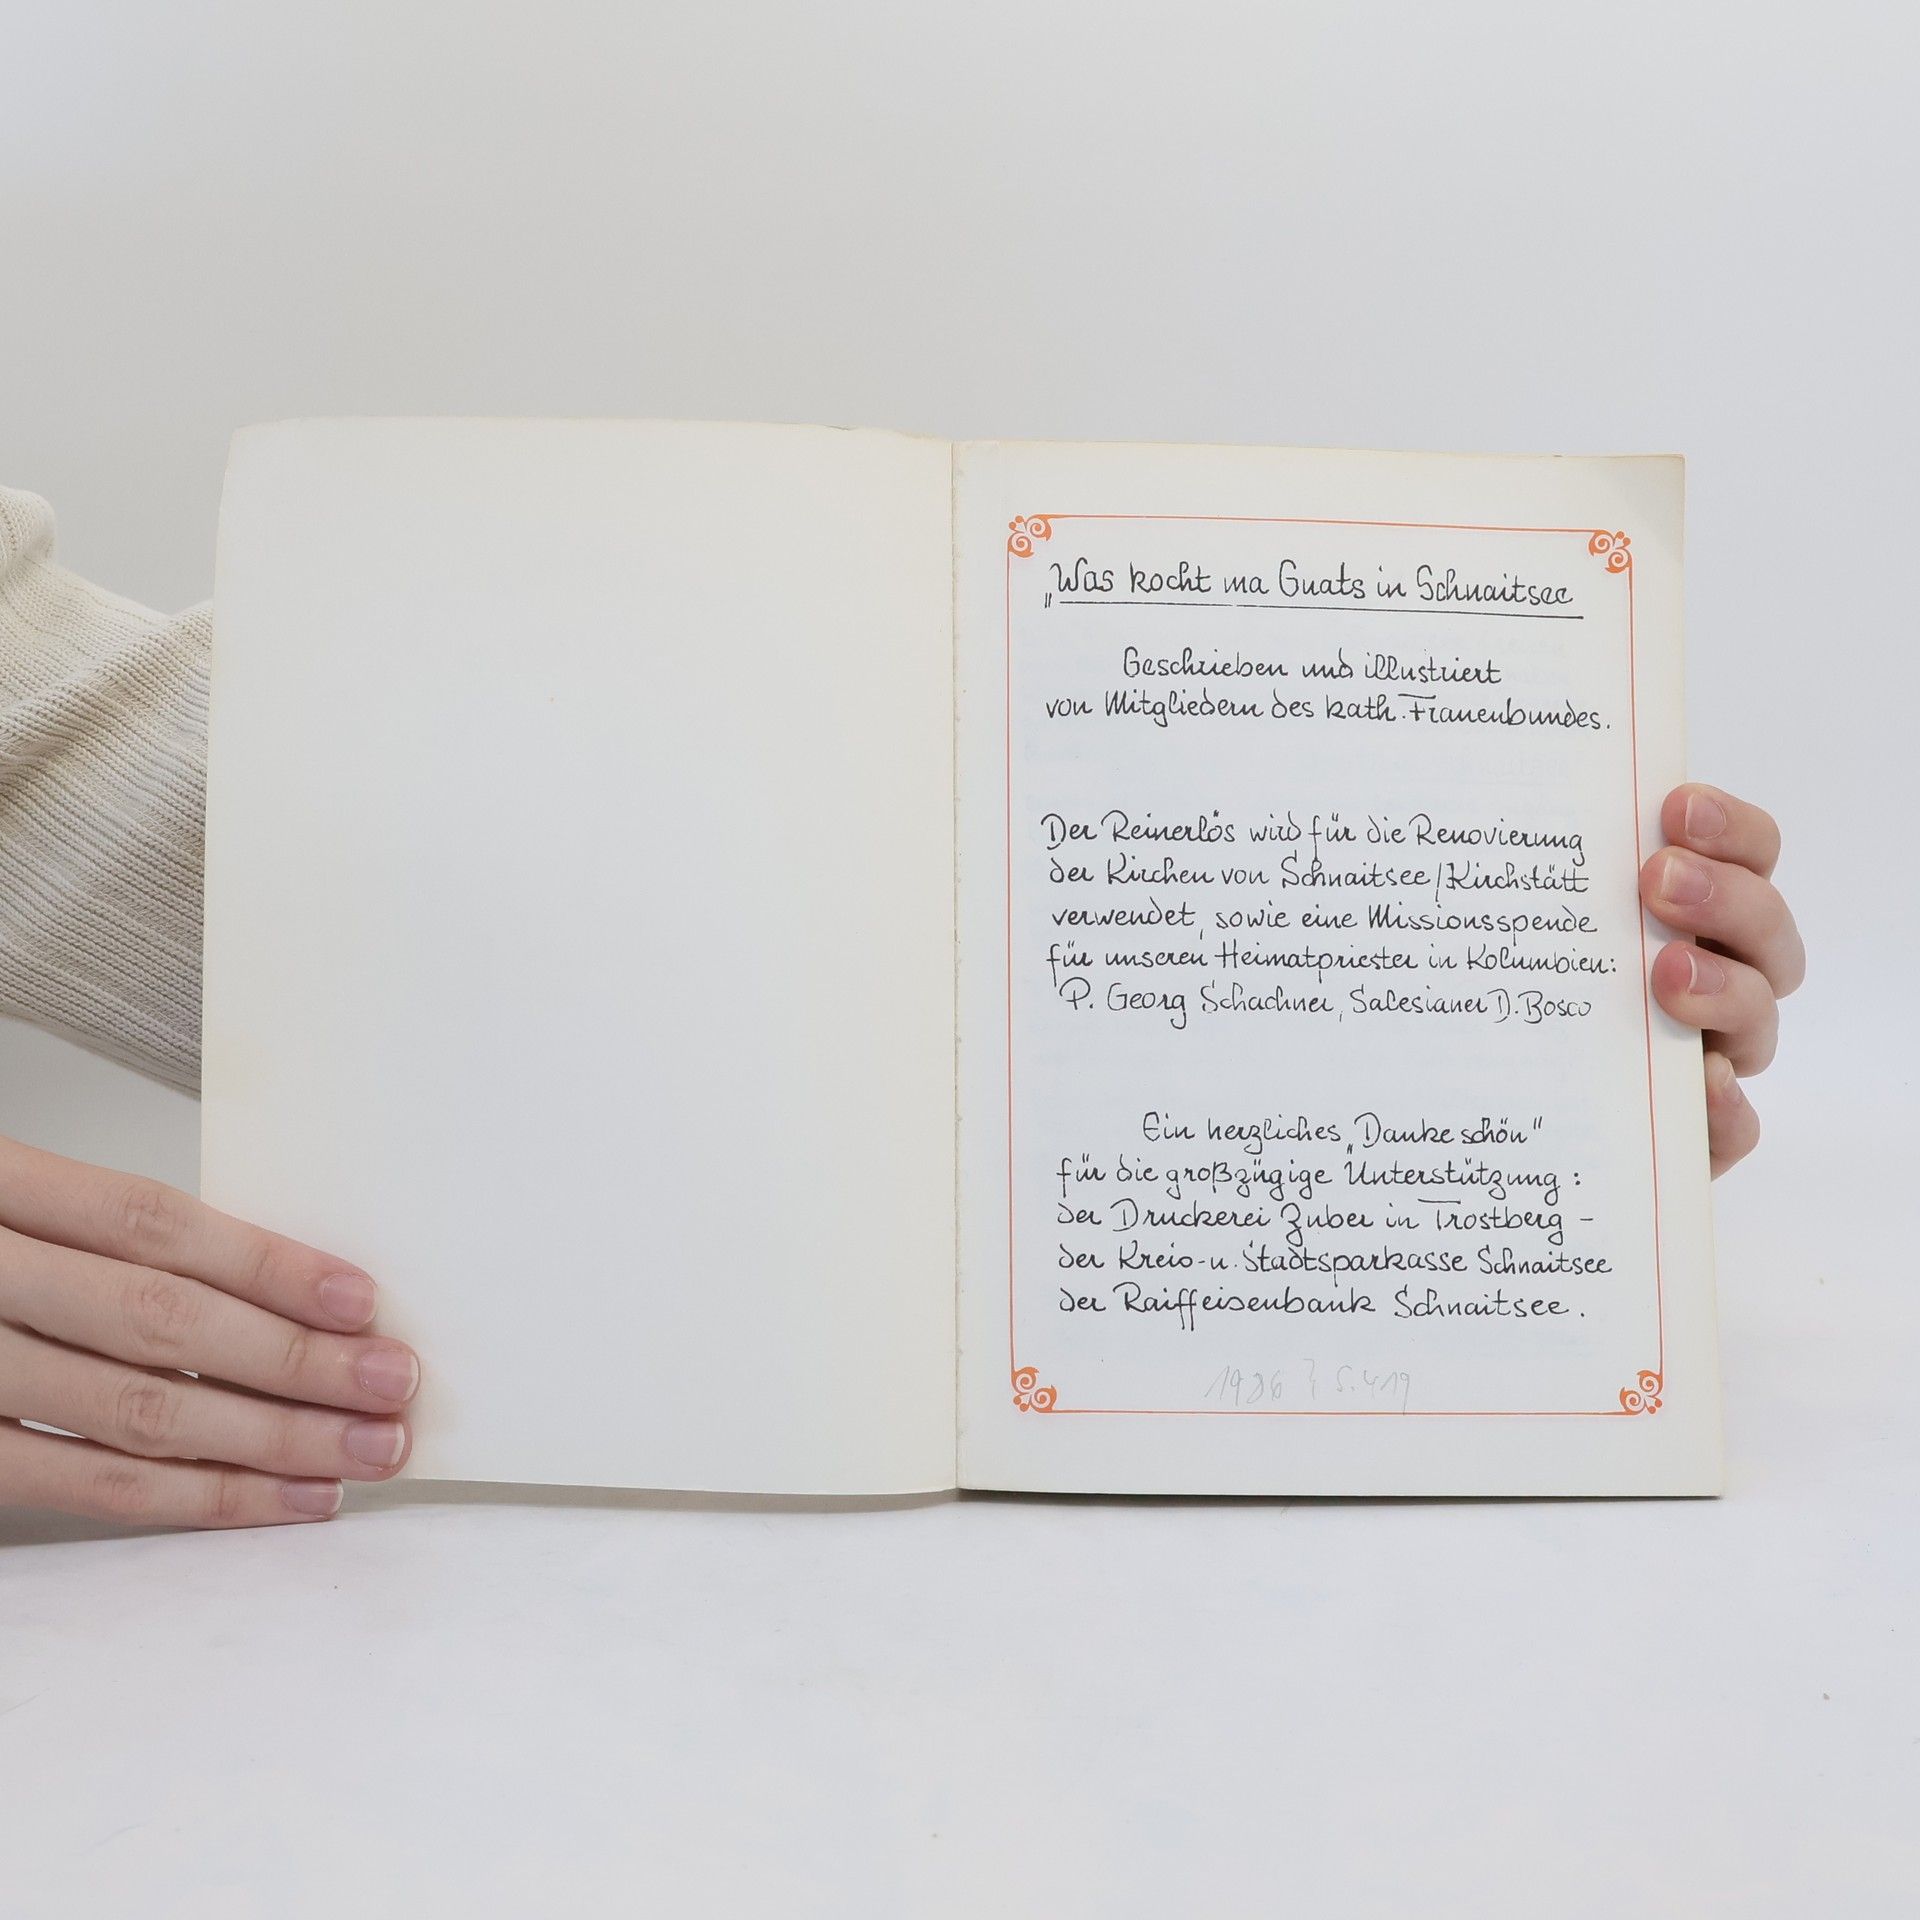 „Was kocht ma Guats in Schnaitsee
Geschrieben und illustriert
von Mitgliedern des kath. Frauenbundes.
Der Reinerlös wird für die Renovierung
der Kirchen von Schnaitsee/Kirchstätt
verwendet, sowie eine Missionsspende
für unseren Heimatpriester in Kolumbien:
P. Georg Schachner, Salesianer D. Bosco
Ein herzliches „Danke schön"
für die großzügige Unterstützung:
der Druckerei Zuber in Trostberg –
der Kreis- u. Stadtsparkasse Schnaitsee
der Raiffeisenbank Schnaitsee.
S. 419